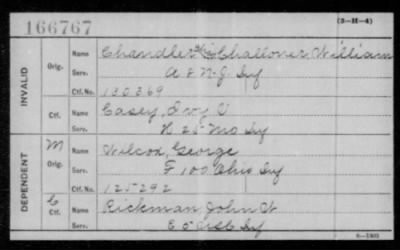 166767
(3-H-4)
INVALID
Orig.
Name Chandler Challoner, William
Serv. A 8 N.J. Inf
Ctf. No. 130369
Ctf.
Name Casey, Ivoy V
Serv. H 25 Mo Inf
DEPENDENT
M
Orig.
Name Wilcox, George
Serv. F 100 Ohio Inf
Ctf. No. 125292
C
Ctf.
Name Rickman John W
Serv. E 5 Inf